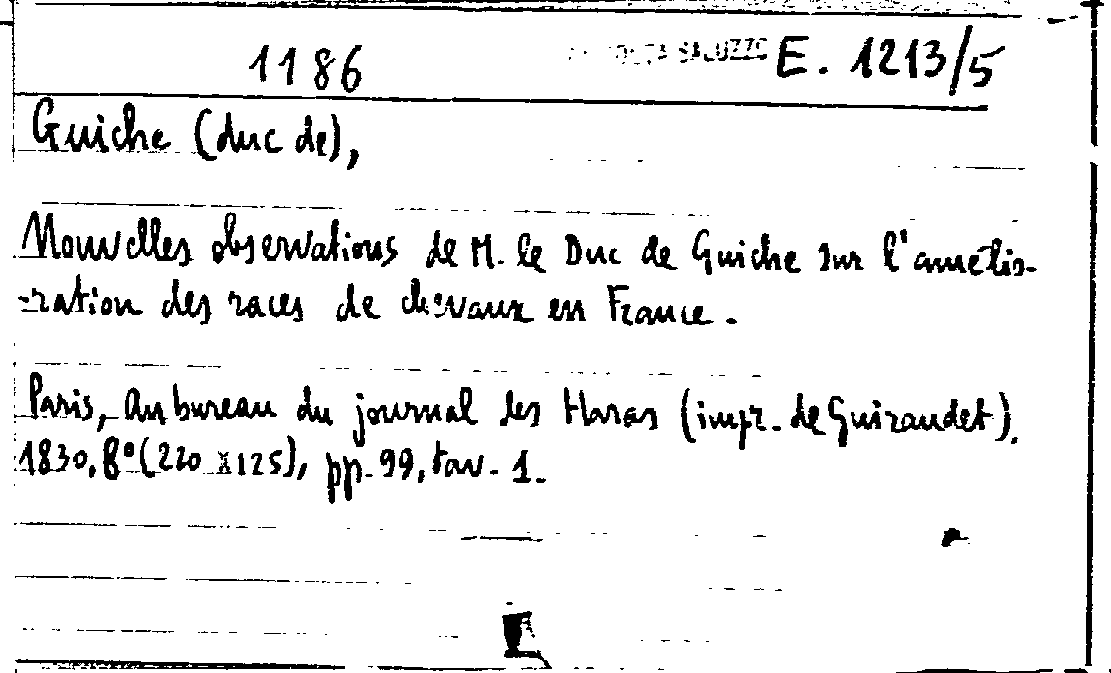 1186 SALUZZO E. 1213/5
Guiche (duc de),
Nouvelles observations de M. le Duc de Guiche sur l'amélio-
-ration des races de chevaux en France.
Paris, Au bureau du journal les Haras (impr. de Guiraudet).
1830, 8° (220 x 125), pp. 99, tav. 1.